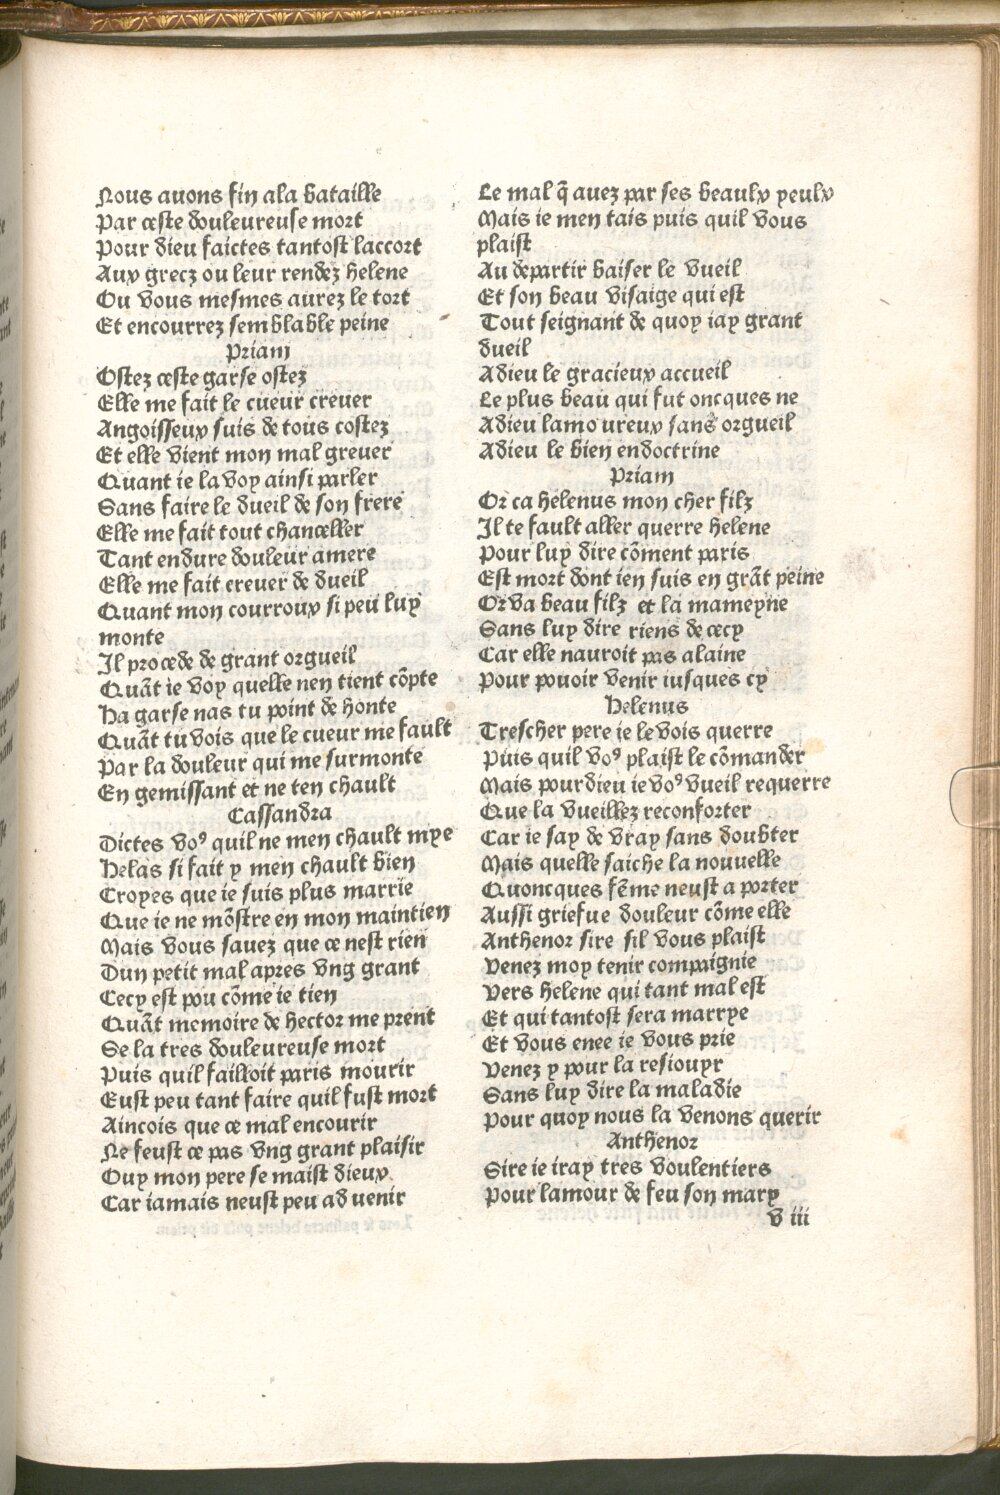 Nous auons fin ala bataille
Par ceste douleureuse mort
Pour dieu faictes tantost laccort
Aux grecz ou leur rendez helene
Ou vous mesmes aurez le tort
Et encourrez semblable peine
Priam
Ostez ceste garse ostez
Elle me fait le cueur creuer
Angoisseux suis de tous costez
Et elle vient mon mal greuer
Quant ie la voy ainsi parler
Sans faire le dueil de son frere
Elle me fait tout chanceller
Tant endure douleur amere
Elle me fait creuer de dueil
Quant mon courroux si peu luy
monte
Il procede de grant orgueil
Quãt ie voy quelle nen tient cõpte
Ha garse nas tu point de honte
Quãt tu vois que le cueur me fault
Par la douleur qui me surmonte
En gemissant et ne ten chault
Cassandra
Dictes voꝰ quil ne men chault mye
Helas si fait y men chault bien
Croyes que ie suis plus marrie
Que ie ne mõstre en mon maintien
Mais vous sauez que ce nest rien
Dun petit mal apres vng grant
Cecy est pou cõme ie tien
Quãt memoire de hector me prent
Se la tres douleureuse mort
Puis quil failloit paris mourir
Eust peu tant faire quil fust mort
Aincois que ce mal encourir
Ne feust ce pas vng grant plaisir
Ouy mon pere se maist dieux
Car iamais neust peu ad venir
Le mal q̃ auez par ses beaulx yeulx
Mais ie men tais puis quil vous
plaist
Au departir baiser le vueil
Et son beau visaige qui est
Tout seignant de quoy iay grant
dueil
Adieu le gracieux accueil
Le plus beau qui fut oncques ne
Adieu lamoureux sans orgueil
Adieu le bien endoctrine
Priam
Or ca helenus mon cher filz
Il te fault aller querre helene
Pour luy dire cõment paris
Est mort dont ien suis en grãt peine
Or va beau filz et la mameyne
Sans luy dire riens de cecy
Car elle nauroit pas alaine
Pour pouoir venir iusques cy
Helenus
Trescher pere ie le vois querre
Puis quil voꝰ plaist le cõmander
Mais pour dieu ie voꝰ vueil requerre
Que la vueillez reconforter
Car ie say de vray sans doubter
Mais quelle saiche la nouuelle
Quoncques fẽme neust a porter
Aussi griefue douleur cõme elle
Anthenor sire sil vous plaist
Venez moy tenir compaignie
Vers helene qui tant mal est
Et qui tantost sera marrye
Et vous enee ie vous prie
Venez y pour la resiouyr
Sans luy dire la maladie
Pour quoy nous la venons querir
Anthenor
Sire ie iray tres voulentiers
Pour lamour de feu son mary
v iii